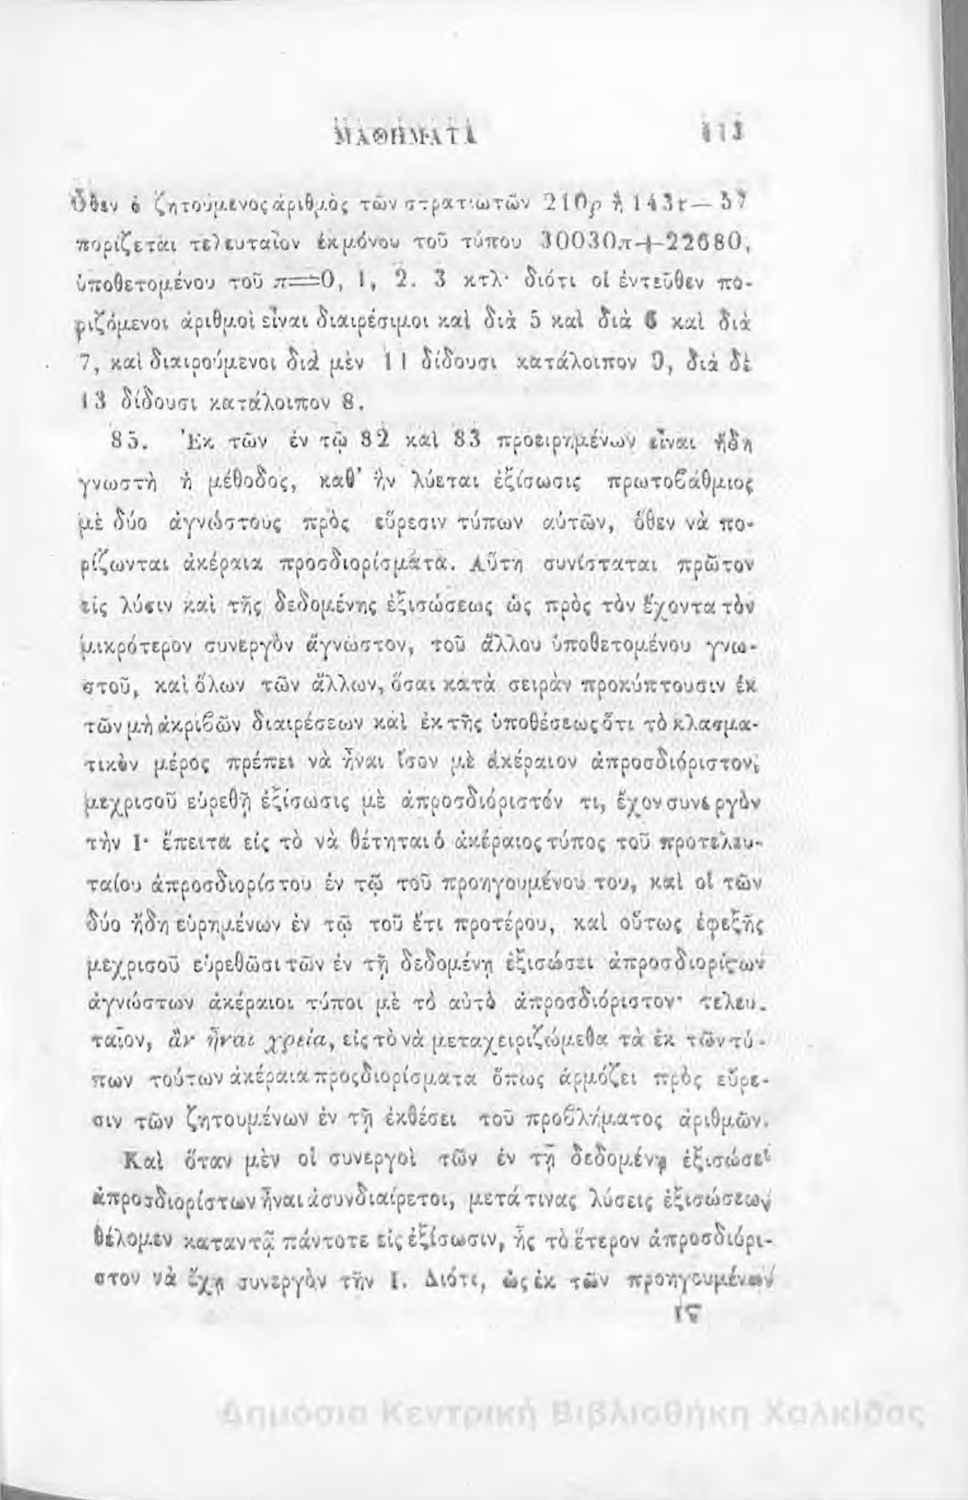 ΜΑΘΗΜΑΤΑ 113
Ὅθεν ὁ ζητούμενος ἀριθμὸς τῶν στρατιωτῶν 210ρ ἢ 143τ — 57
πορίζεται τελευταῖον ἐκμόνου τοῦ τύπου 30030π+22680,
ὑποθετομένου τοῦ π=0, 1, 2. 3 κτλ· διότι οἱ ἐντεῦθεν πο-
ριζόμενοι ἀριθμοὶ εἶναι διαιρέσιμοι καὶ διὰ 5 καὶ διὰ 6 καὶ διὰ
7, καὶ διαιρούμενοι διὰ μὲν 11 δίδουσι κατάλοιπον 9, διὰ δὲ
13 δίδουσι κατάλοιπον 8.
85. Ἐκ τῶν ἐν τῷ 82 καὶ 83 προειρημένων εἶναι ἤδη
γνωστὴ ἡ μέθοδος, καθ' ἣν λύεται ἐξίσωσις πρωτοβάθμιος
μὲ δύο ἀγνώστους πρὸς εὕρεσιν τύπων αὐτῶν, ὅθεν νὰ πο-
ρίζωνται ἀκέραια προσδιορίσματα. Αὕτη συνίσταται πρῶτον
εἰς λύσιν καὶ τῆς δεδομένης ἐξισώσεως ὡς πρὸς τὸν ἔχοντα τὸν
μικρότερον συνεργὸν ἄγνωστον, τοῦ ἄλλου ὑποθετομένου γνω-
στοῦ, καὶ ὅλων τῶν ἄλλων, ὅσαι κατὰ σειρὰν προκύπτουσιν ἐκ
τῶν μὴ ἀκριβῶν διαιρέσεων καὶ ἐκ τῆς ὑποθέσεως ὅτι τὸ κλασμα-
τικὸν μέρος πρέπει νὰ ἦναι ἴσον μὲ ἀκέραιον ἀπροσδιόριστον,
μεχρισοῦ εὑρεθῇ ἐξίσωσις μὲ ἀπροσδιόριστόν τι, ἔχον συνεργὸν
τὴν 1· ἔπειτα εἰς τὸ νὰ θέτηται ὁ ἀκέραιος τύπος τοῦ προτελευ-
ταίου ἀπροσδιορίστου ἐν τῷ τοῦ προηγουμένου του, καὶ οἱ τῶν
δύο ἤδη εὑρημένων ἐν τῷ τοῦ ἔτι προτέρου, καὶ οὕτως ἐφεξῆς
μεχρισοῦ εὑρεθῶσι τῶν ἐν τῇ δεδομένῃ ἐξισώσει ἀπροσδιορίστων
ἀγνώστων ἀκέραιοι τύποι μὲ τὸ αὐτὸ ἀπροσδιόριστον· τελευ-
ταῖον, ἂν ἦναι χρεία, εἰς τὸ νὰ μεταχειριζώμεθα τὰ ἐκ τῶν τύ-
πων τούτων ἀκέραια προςδιορίσματα ὅπως ἁρμόζει πρὸς εὕρε-
σιν τῶν ζητουμένων ἐν τῇ ἐκθέσει τοῦ προβλήματος ἀριθμῶν.
Καὶ ὅταν μὲν οἱ συνεργοὶ τῶν ἐν τῇ δεδομένῃ ἐξισώσει
ἀπροσδιορίστων ἦναι ἀσυνδιαίρετοι, μετά τινας λύσεις ἐξισώσεων
θέλομεν καταντᾷ πάντοτε εἰς ἐξίσωσιν, ἧς τὸ ἕτερον ἀπροσδιόρι-
στον νὰ ἔχῃ συνεργὸν τὴν 1. Διότι, ὡς ἐκ τῶν προηγουμένων
ΙϚ
Δημόσια Κεντρική Βιβλιοθήκη Χαλκίδας